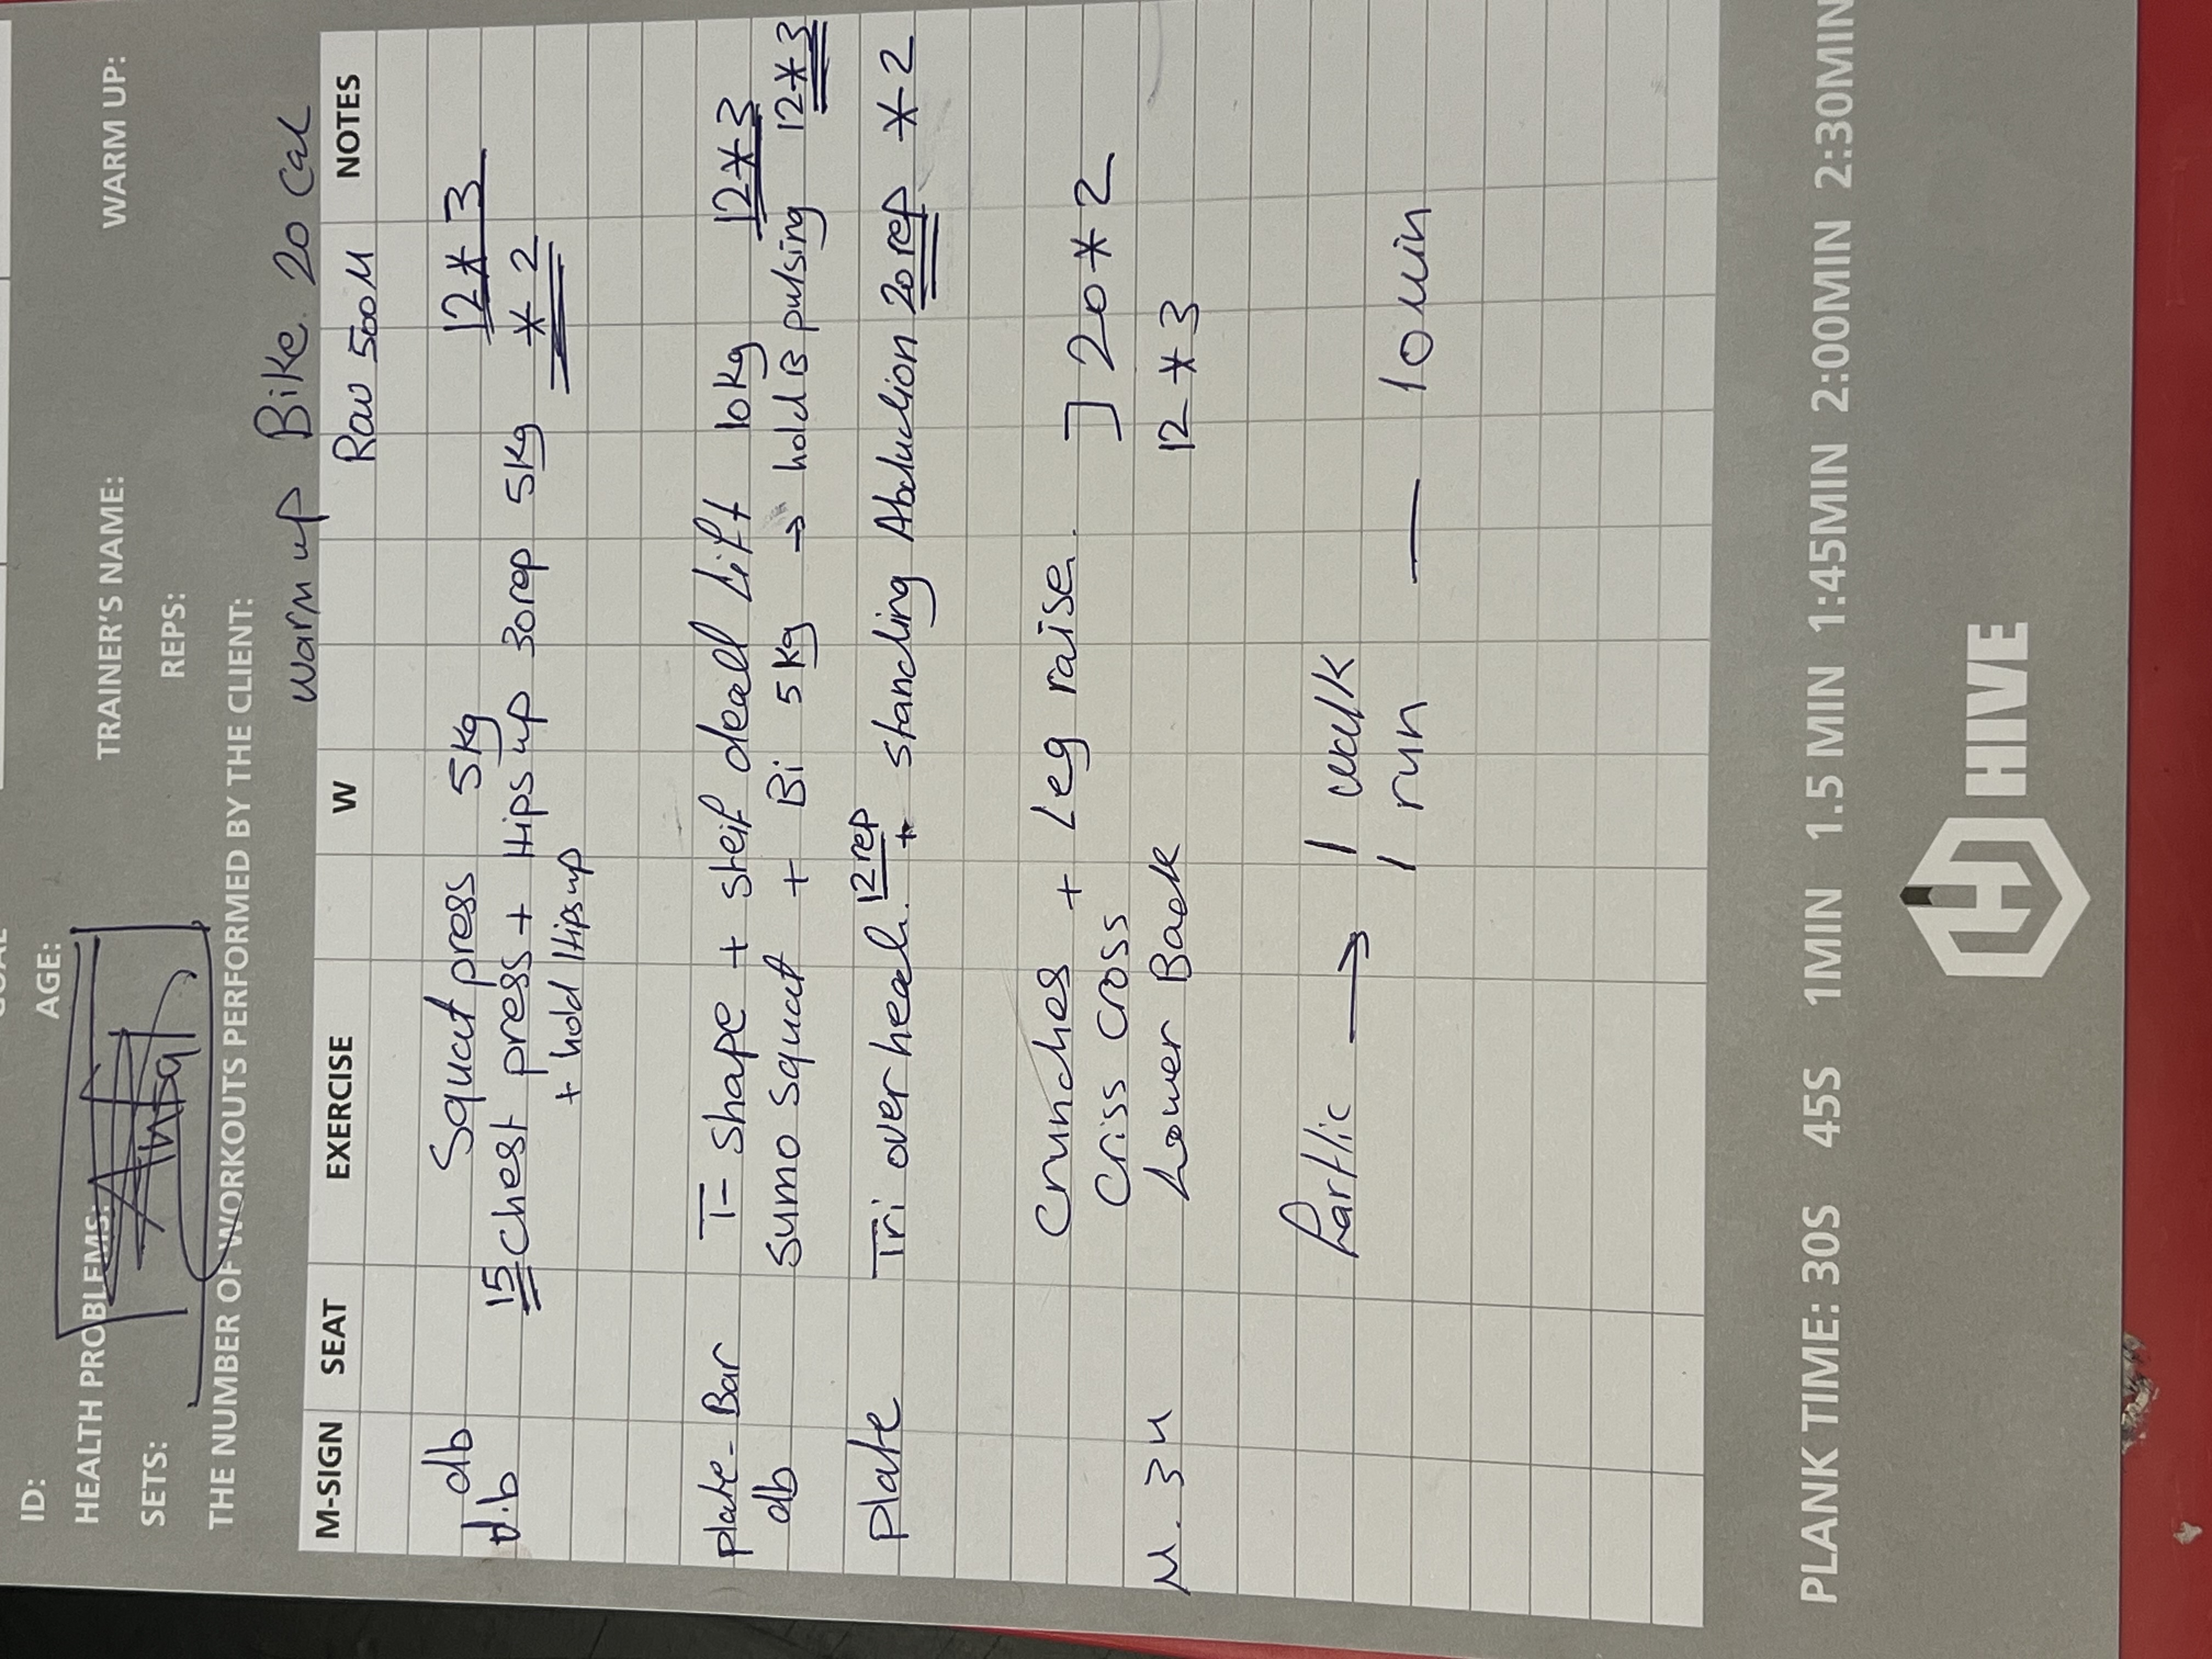 ID:
AGE:
HEALTH PROBLEMS:
TRAINER'S NAME:
WARM UP:
SETS:
REPS:
THE NUMBER OF WORKOUTS PERFORMED BY THE CLIENT:
warm up Bike. 20 Cal
M-SIGN SEAT EXERCISE W NOTES
Row 500M
db Squat press 5kg 12*3
d.b 15 chest press + Hips up 30rep 5kg *2
+ hold Hips up
plate-Bar T-shape + steif deadlift 10kg 12*3
db Sumo squat + Bi 5kg → hold B pulsing 12*3
plate Tri over head. 12rep + standing Abduction 20rep *2
Crunches + Leg raise. ] 20*2
Criss cross
M.34 Lower Back 12*3
→ 1 walk
1 run — 10min
PLANK TIME: 30S 45S 1MIN 1.5 MIN 1:45MIN 2:00MIN 2:30MIN
HIVE